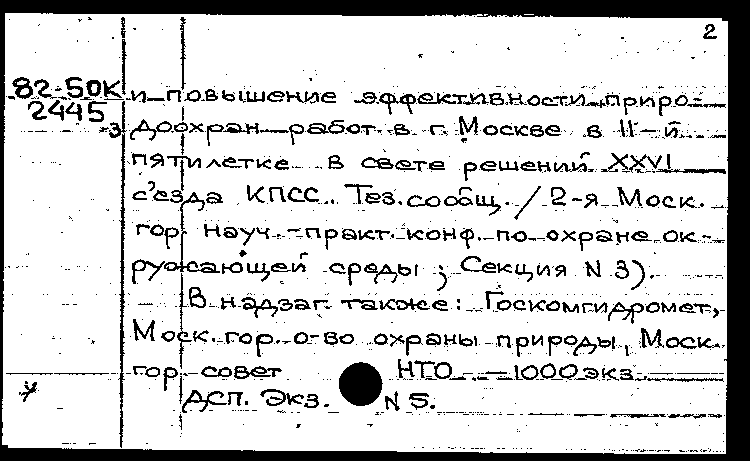 2
82-50К и повышение эффективности приро-
2445
-3 доохран работ в г. Москве в 11-й
пятилетке в свете решений XXVI
с'езда КПСС. Тез. сообщ. / 2-я Моск.
гор. науч.-практ. конф. по охране ок-
ружающей среды ; Секция N 3).
В надзаг. также: Госкомгидромет,
Моск. гор. о-во охраны природы, Моск.
гор. совет НТО — 1000 экз.
ДСП. Экз. N 5.